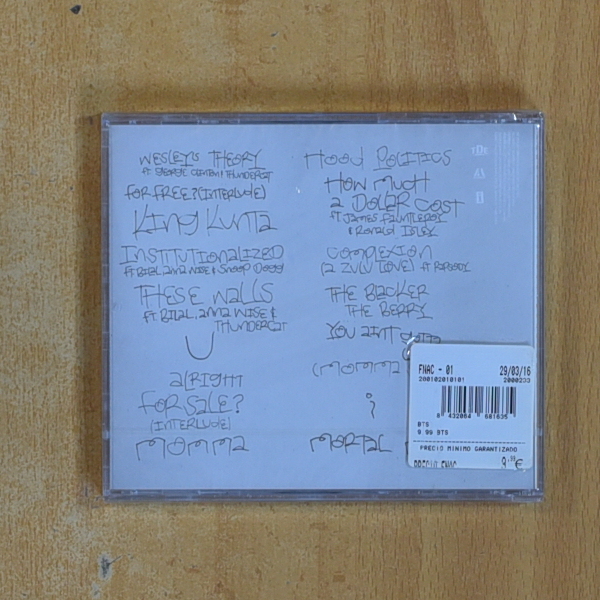 WESLEY'S THEORY
ft GEORGE CLINTON & THUNDERCAT
FOR FREE? (INTERLUDE)
KING KUNTA
INSTITUTIONALIZED
ft BILAL, ANNA WISE & SNOOP DOGG
THESE WALLS
ft. BILAL, ANNA WISE &
THUNDERCAT
U
alRIGHT
FOR SALE?
(INTERLUDE)
MOMMA
HOOD POLITICS
HOW MUCH
a DOLLAR COST
ft JAMES FAUNTLEROY
& RONALD ISLEY
COMPLEXION
(a ZULU LOVE) ft RAPSODY
THE BLACKER
THE BERRY
YOU AINT GOTTA
(MOMMA
i
MORTAL
TDE
FNAC - 01 29/03/16
200102010101 2000233
8 432064 681635
BTS
9.99 BTS
PRECIO MINIMO GARANTIZADO
PRECIO FNAC 9,99 €